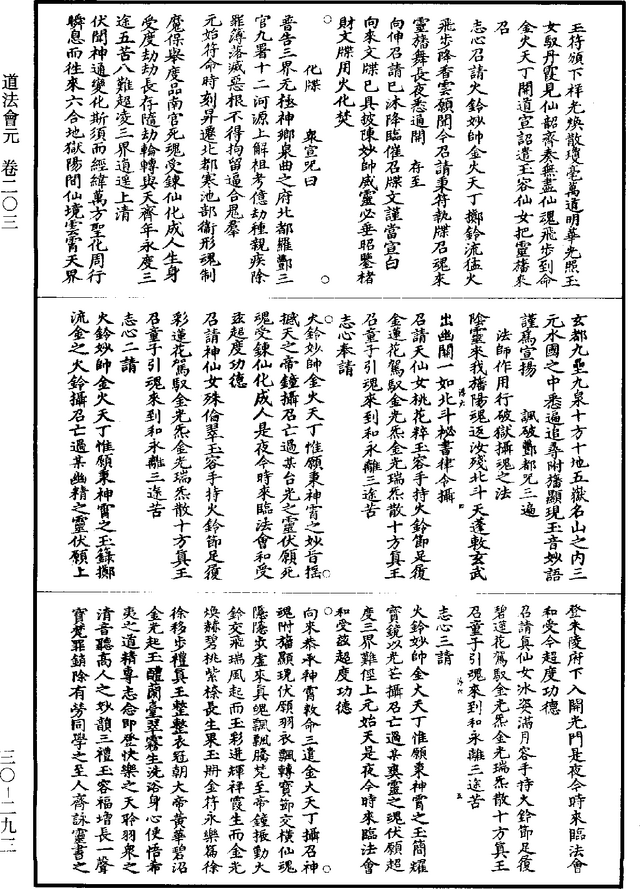 道法會元 卷二〇三
三〇—二九二
玉符頒下祥光煥散瓊毫萬道明華光照玉
女馭丹霞見仙韶齊奏無盡仙魂飛步到命
金火天丁開道宣詔遣玉容仙女把靈旛來
召
志心召請火鈴妙帥金火天丁擲鈴流猛火
飛步降香雲願聞今召請秉符執牒召魂來
靈旛舞長夜悉通開 存至
向伸召請已沐降臨催召牒文謹當宣白
向來文牒已具披陳妙帥威靈必垂昭鑒楮
財文牒用火化焚
化牒 衆宣咒曰
普告三界無極神鄉泉曲之府北都羅酆三
官九署十二河源上解祖考億劫種親疾除
罪簿落滅惡根不得拘留逼合鬼羣
元始符命時刻昇遷北都寒池部衛形魂制
魔保舉度品南宮死魂受鍊仙化成人生身
受度劫劫長存隨劫輪轉與天齊年永度三
途五苦八難超淩三界逍遥上清
伏聞神通變化斯須而經緯萬方聖化周行
瞬息而往來六合地獄陽間仙境雲霄天界
玄都九壘九泉十方十地五嶽名山之内三
元水國之中悉遍追尋附旛顯現玉音妙語
謹爲宣揚 諷破酆都咒三遍
法師作用行破獄攝魂之法
陰靈來我旛陽魂返汝殘北斗天蓬敕玄武
出幽關一如北斗祕書律令攝
召請天仙女桃花粹玉容手持火鈴節足履
金蓮花駕馭金光炁金光瑞炁散十方真王
召童子引魂來到和永離三途苦
志心奉請
火鈴妙帥金火天丁惟願秉神霄之妙旨摇
撼天之帝鐘攝召亡過某台光之靈伏願死
魂受鍊仙化成人是夜今時來臨法會和受
兹超度功德
召請神仙女殊倫翠玉容手持火鈴節足履
彩蓮花駕馭金光炁金光瑞炁散十方真王
召童子引魂來到和永離三途苦
志心二請
火鈴妙帥金火天丁惟願秉神霄之玉籙擲
流金之火鈴攝召亡過某幽精之靈伏願上
登朱陵府下入開光門是夜今時來臨法會
和受今超度功德
召請真仙女冰姿滿月容手持火鈴節足履
碧蓮花駕馭金光炁金光瑞炁散十方真王
召童子引魂來到和永離三途苦
志心三請
火鈴妙帥金火天丁惟願秉神霄之玉簡耀
寳鏡以光芒攝召亡過某爽靈之魂伏願超
度三界難徑上元始天是夜今時來臨法會
和受兹超度功德
向來恭承神霄敕命三遣金火天丁攝召神
魂附旛顯現伏願羽衣飄轉寳節交横仙魂
隱隱步虚來真魄飄飄騰梵至帝鐘振動火
鈴交飛瑞風起而玉彩迸輝祥霞生而金光
煥赫碧桃紫㮈長生果玉册金符永樂篇徐
徐移步禮真王整整衣冠朝大帝黄華碧沼
金光起玉醴蘭臺翠霧生洗浴身心便悟希
夷之道精專志念即登快樂之天聆羽衆之
清音聽高人之妙韻三禮玉容福增長一聲
寳梵罪鎖除有勞同學之至人齊詠靈書之